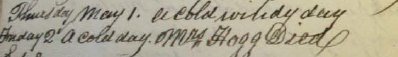 Thursday May 1. a cold windy day
Friday 2d A cold day. Mrs Hogg Died